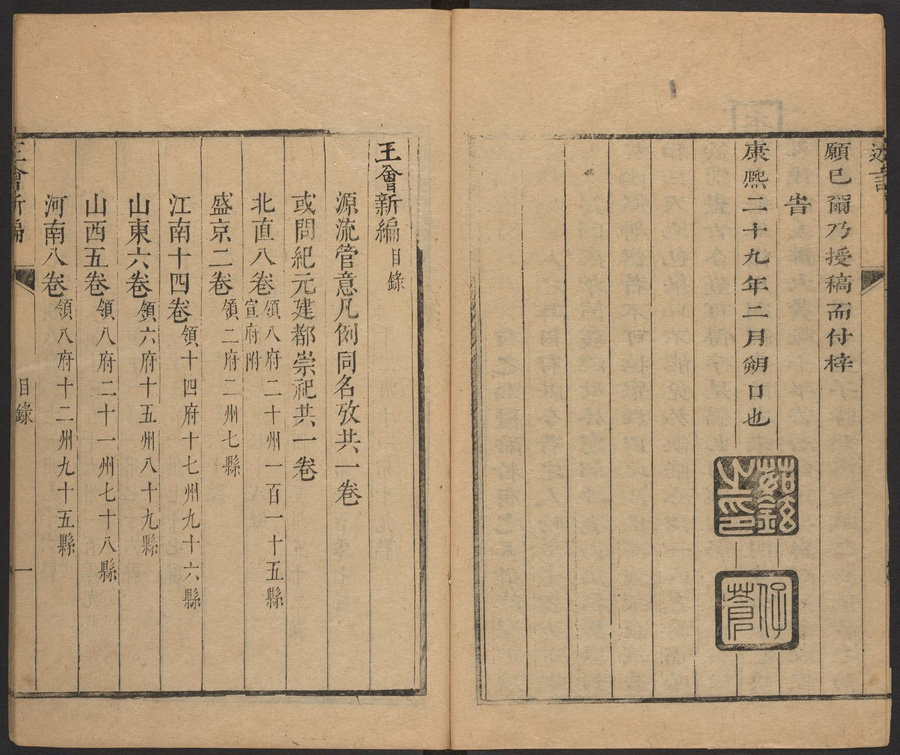 願已爾乃授稿而付梓
旹
康熙二十九年二月朔日也
茹鉉之印
仔蒼
王會新編目錄
源流管意凡例同名攷共一卷
或問紀元建都崇祀共一卷
北直八卷領八府二十州一百一十五縣宣府附
盛京二卷領二府二州七縣
江南十四卷領十四府十七州九十六縣
山東六卷領六府十五州八十九縣
山西五卷領八府二十一州七十八縣
河南八卷領八府十二州九十五縣
王會新編
目錄
一